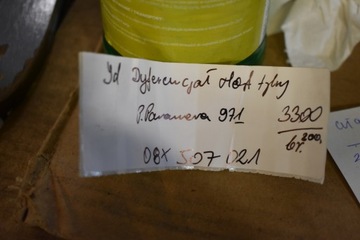 Yd Dyferencjał Haft tylny
P. Panamera 971 3300
br. 200,
0BX 507 021